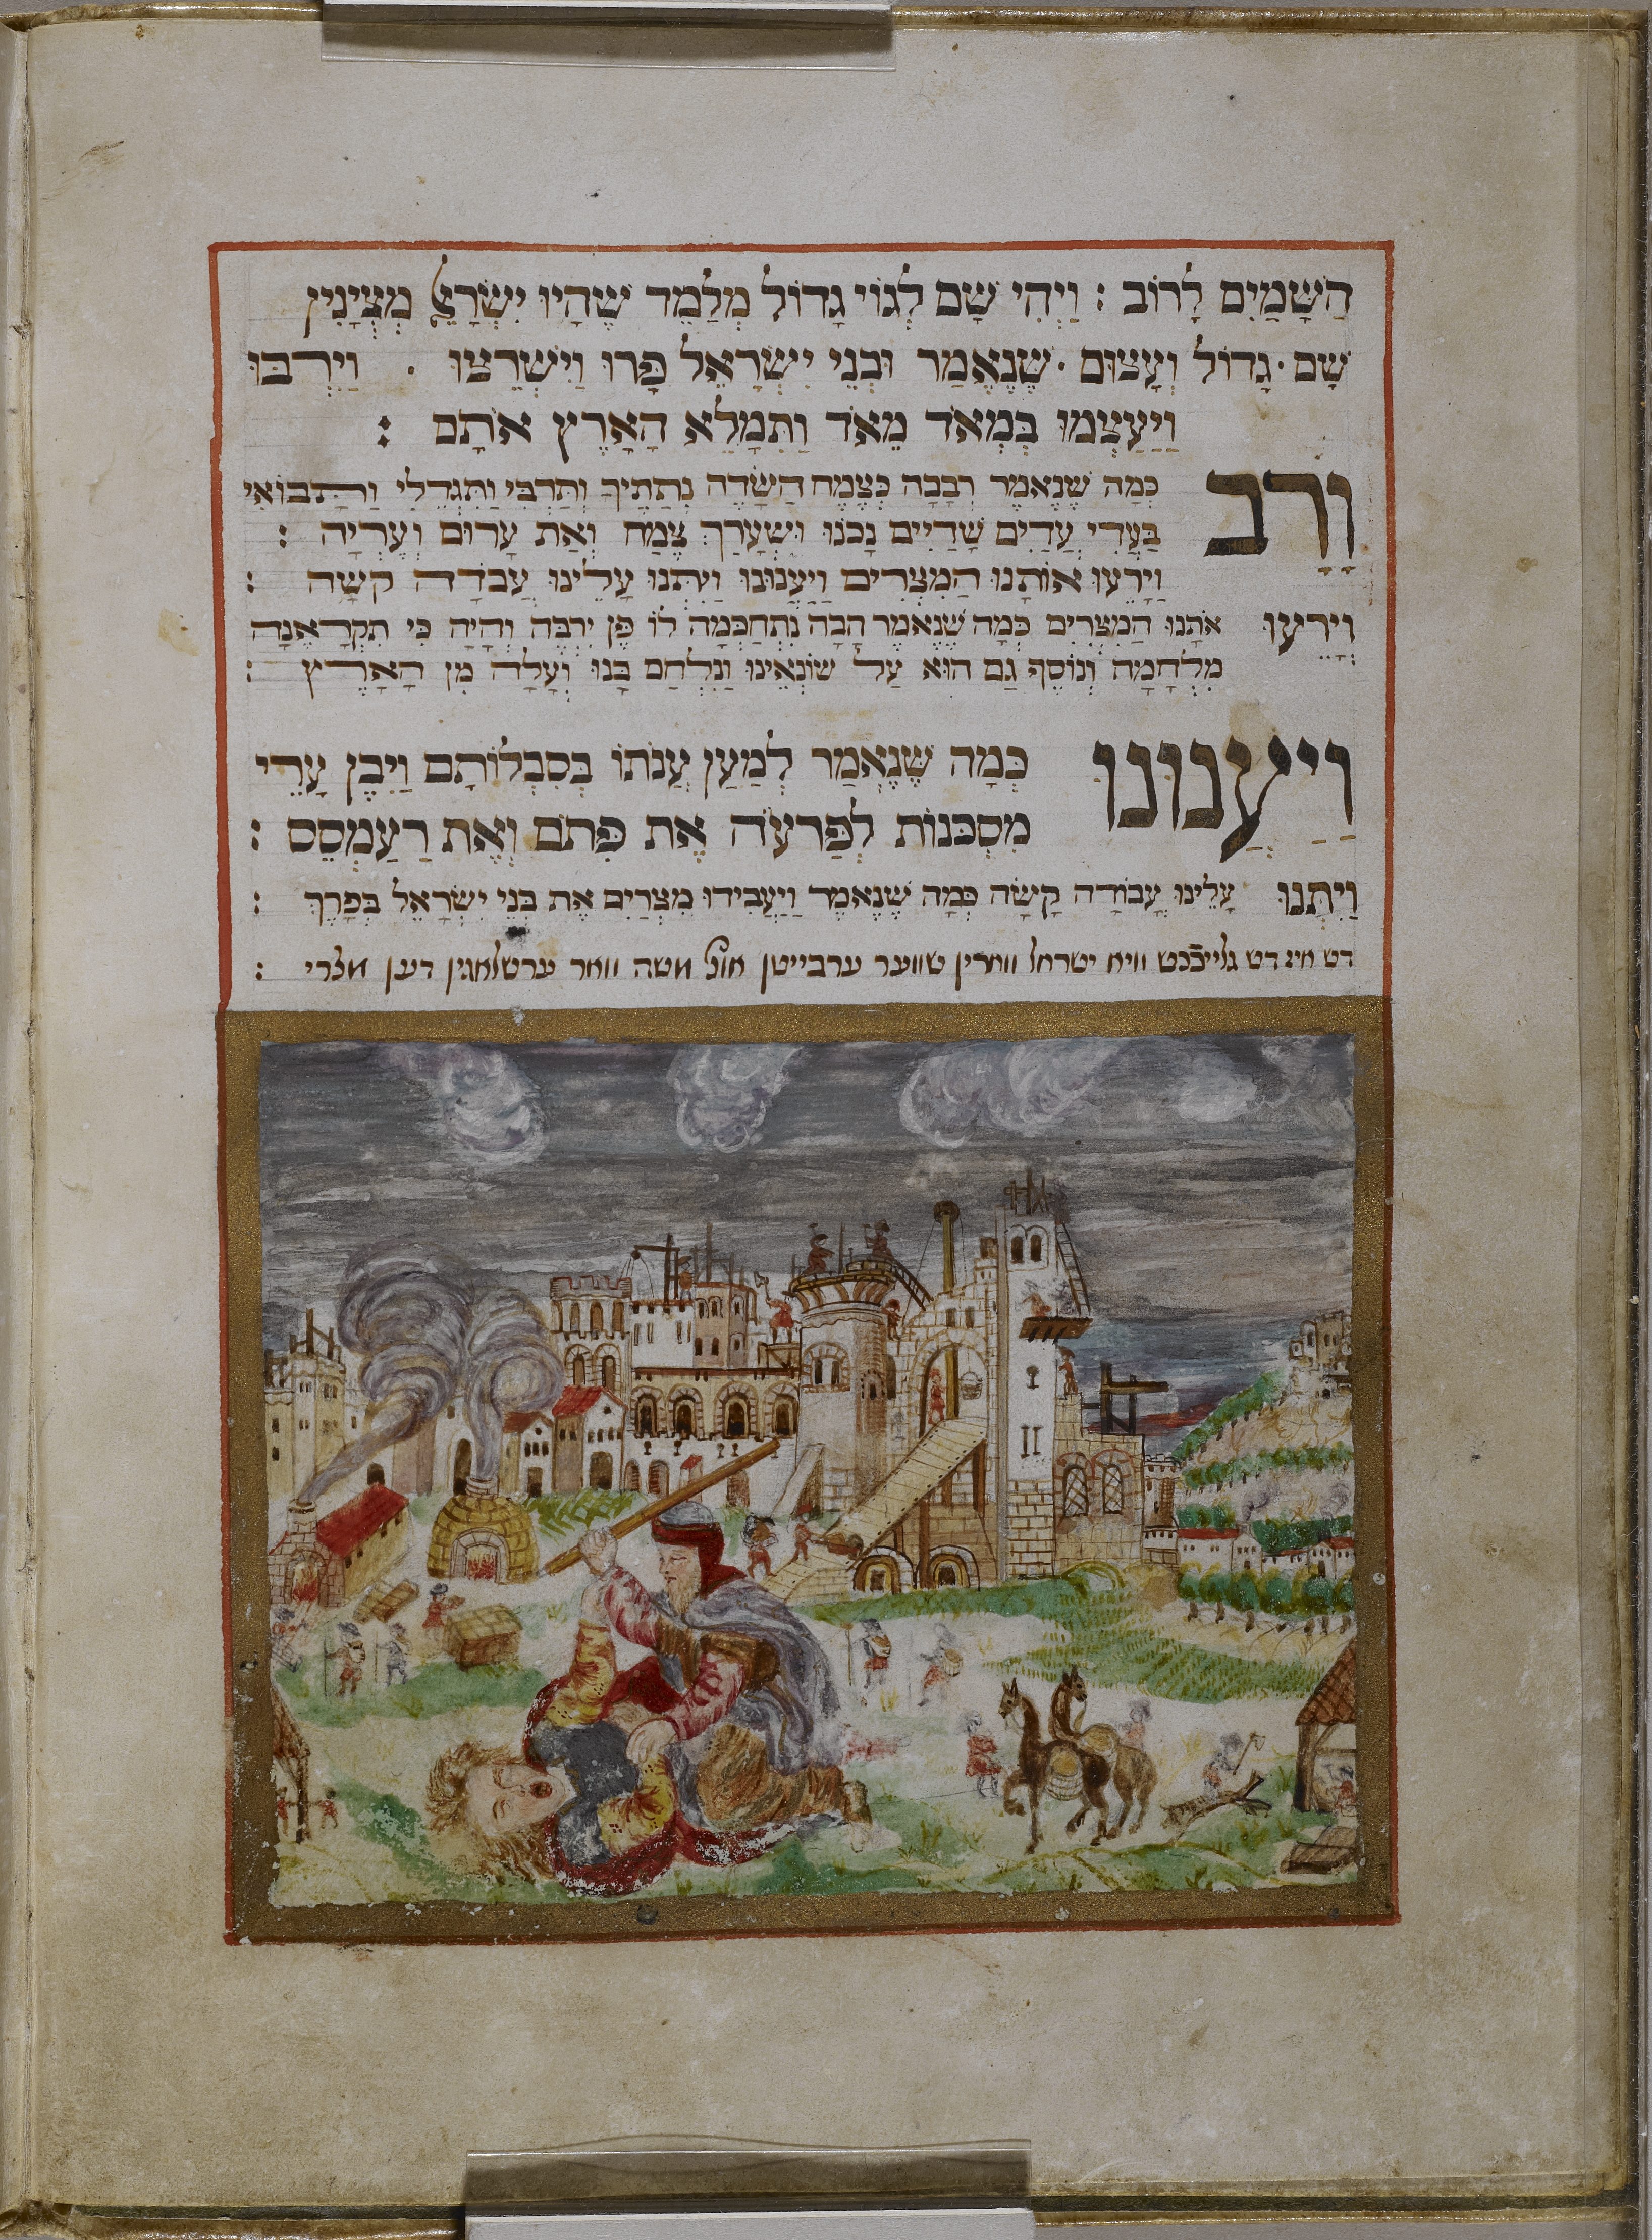 הַשָּׁמַיִם לָרוֹב : וַיְהִי שָׁם לְגוֹי גָדוֹל מְלַמֵּד שֶׁהָיוּ יִשְׂרָאֵל מְצֻיָּנִין
שָׁם · גָּדוֹל וְעָצוּם · שֶׁנֶּאֱמַר וּבְנֵי יִשְׂרָאֵל פָּרוּ וַיִּשְׁרְצוּ · וַיִּרְבּוּ
וַיַּעַצְמוּ בִּמְאֹד מְאֹד וַתִּמָּלֵא הָאָרֶץ אֹתָם :
וָרָב כְּמָה שֶׁנֶּאֱמַר רְבָבָה כְּצֶמַח הַשָּׂדֶה נְתַתִּיךְ וַתִּרְבִּי וַתִּגְדְּלִי וַתָּבוֹאִי
בַּעֲדִי עֲדָיִים שָׁדַיִים נָכֹנוּ וּשְׂעָרֵךְ צִמֵּחַ וְאַתְּ עָרוֹם וְעֶרְיָה :
וַיָּרֵעוּ אוֹתָנוּ הַמִּצְרִים וַיְעַנּוּנוּ וַיִּתְּנוּ עָלֵינוּ עֲבֹדָה קשָׁה :
וַיָּרֵעוּ אֹתָנוּ הַמִּצְרִים כְּמָה שֶׁנֶּאֱמַר הָבָה נִתְחַכְּמָה לוֹ פֶּן יִרְבֶּה וְהָיָה כִּי תִקְרֶאנָה
מִלְחָמָה וְנוֹסַף גַם הוּא עַל שׂוֹנְאֵינוּ וְנִלְחַם בָּנוּ וְעָלָה מִן הָאָרֶץ :
וַיְעַנּוּנוּ כְּמָה שֶׁנֶּאֱמַר לְמַעַן עַנֹּתוֹ בְּסִבְלוֹתָם וַיִּבֶן עָרֵי
מִסְכְּנוֹת לְפַרְעֹה אֶת פִּתֹם וְאֶת רַעַמְסֵס :
וַיִּתְּנוּ עָלֵינוּ עֲבוֹדָה קָשָׁה כְּמָה שֶׁנֶּאֱמַר וַיַּעֲבִידוּ מִצְרַיִם אֶת בְּנֵי יִשְׂרָאֵל בְּפָרֶךְ :
דש אינ דש גלייככט וויא ישראל ווארין שווער ערבייטן אונ' משה וואר ערשלאגין דען מצרי :